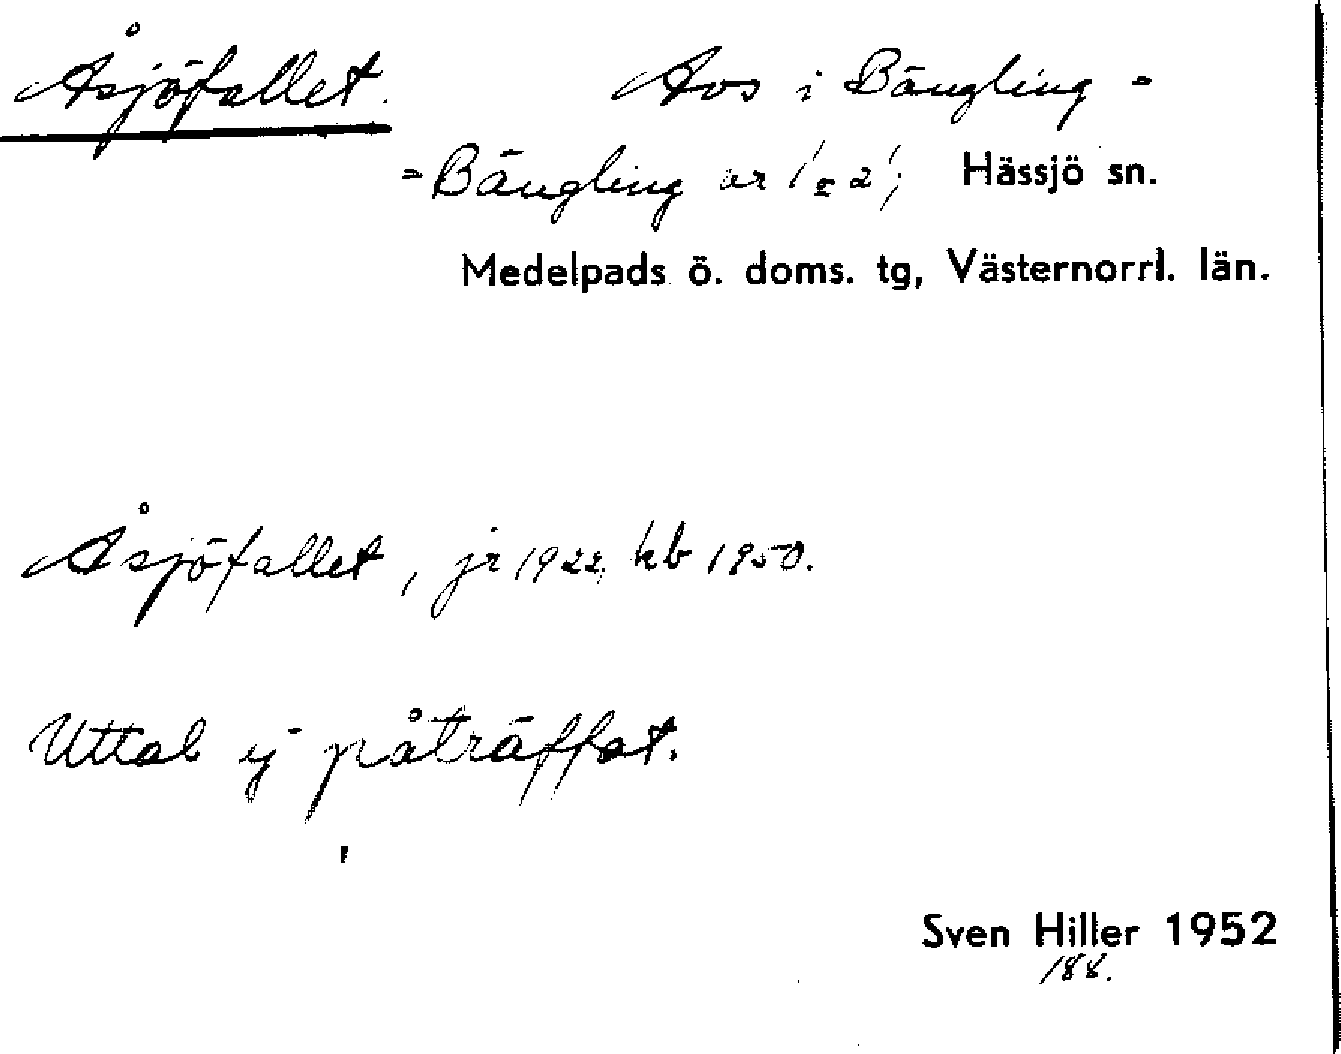 Åsjöfallet. Avs i Bängling -
- Bängling nr 1 o 2; Hässjö sn.
Medelpads ö. doms. tg, Västernorrl. län.
Åsjöfallet, jr 1922, kb 1950.
Uttal ej påträffat.
Sven Hiller 1952
188.